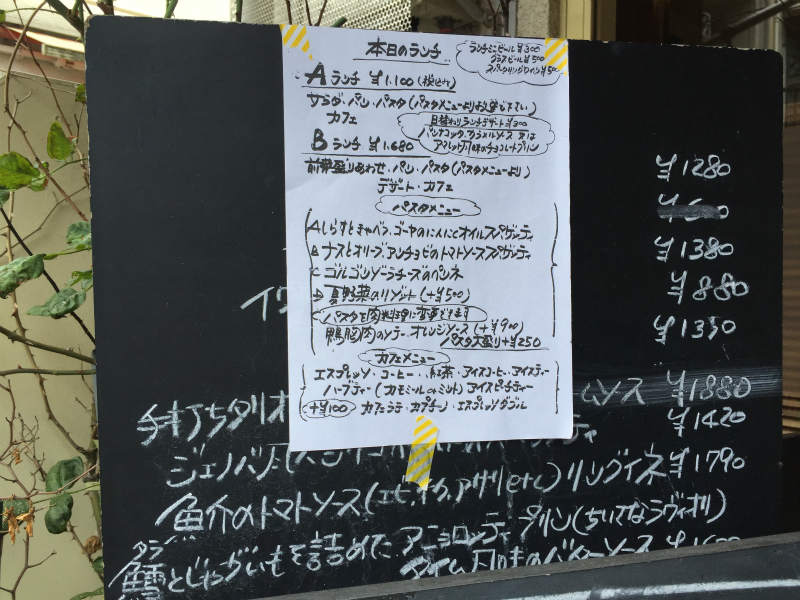 本日のランチ
ランチミニビール ¥300
グラスビール ¥500
スパークリングワイン ¥500
Aランチ ¥1.100(税込み)
サラダ・パン・パスタ(パスタメニューよりお選び下さい)
カフェ
日替わりランチデザート ¥300
パンナコッタ、カラメルソース 又は
アマレット風味のチョコレートプリン
Bランチ ¥1.680
前菜盛りあわせ・パン・パスタ(パスタメニューより)
デザート・カフェ
パスタメニュー
A しらすとキャベツ、ゴーヤのにんにくオイルスパゲッティ
B ナスとオリーブ、アンチョビのトマトソーススパゲッティ
C ゴルゴンゾーラチーズのペンネ
D 夏野菜のリゾット (+¥500)
パスタを肉料理に変更できます
鴨胸肉のソテー オレンジソース (+¥900)
パスタ大盛り+¥250
カフェメニュー
エスプレッソ・コーヒー・紅茶・アイスコーヒー・アイスティー
ハーブティー(カモミールorミント)アイスピーチティー
+¥100 カフェラテ・カプチーノ・エスプレッソダブル
¥1280
¥1380
¥880
¥1350
ームソース ¥1880
手打ちタリオ
¥1420
ジェノバ風
ティ
魚介のトマトソース(エビ、イカ、アサリetc)リングイネ ¥1790
鱈とじゃがいもを詰めた
タラ
プリン(ちいさなラヴィオリ)
タイム風味のバターソース